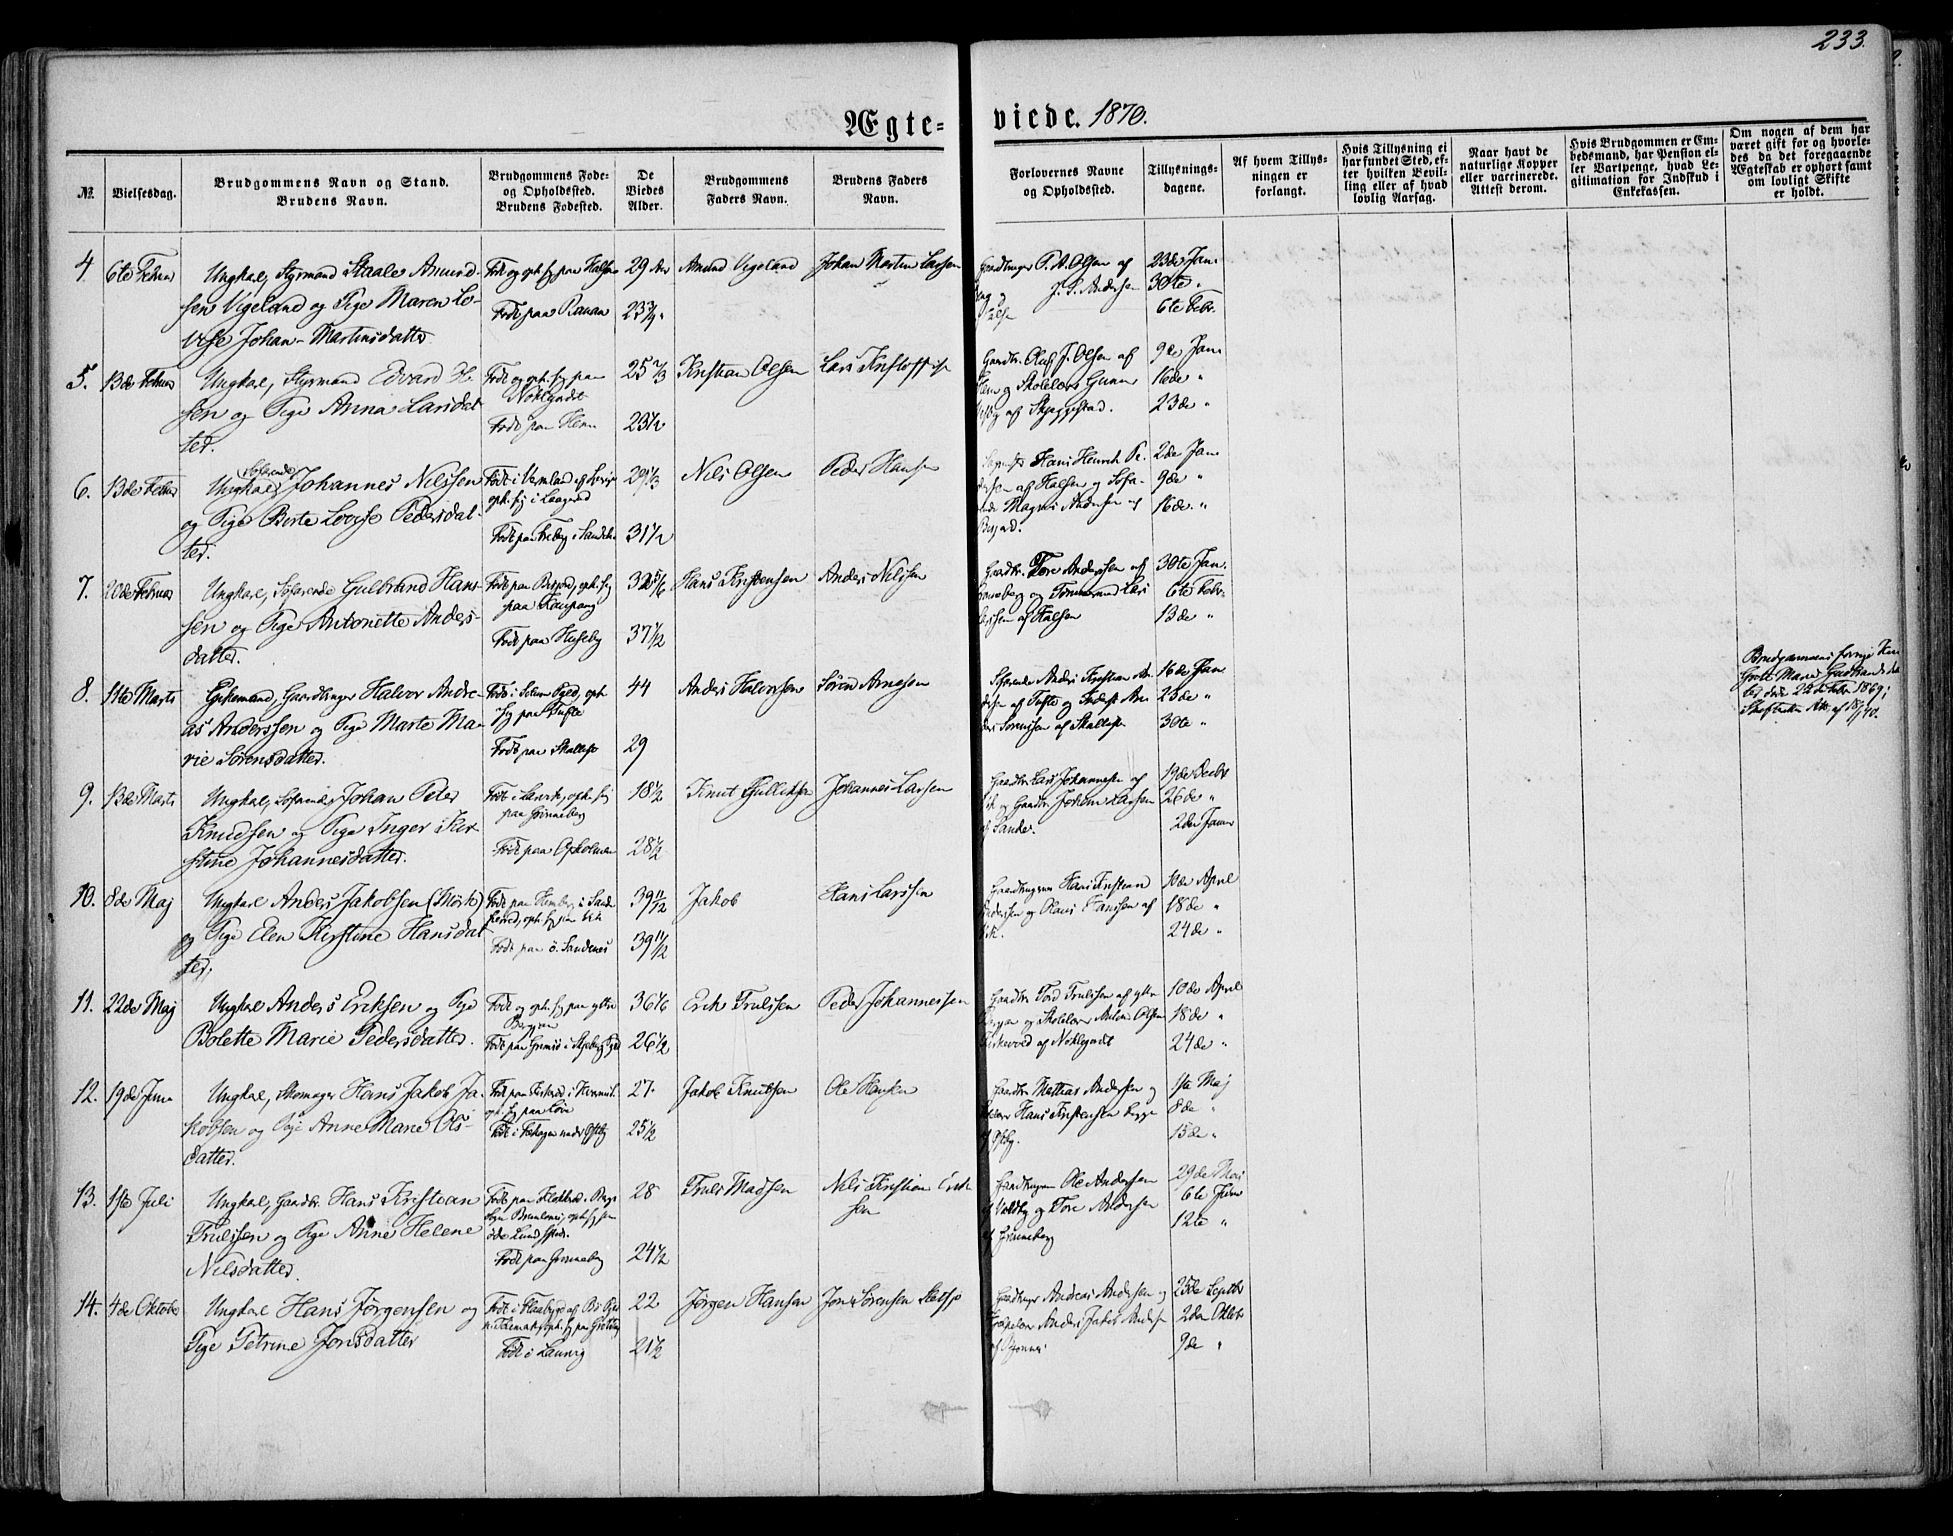 233.
Ægte=
viede. 1870.
№.
Vielsesdag.
Brudgommens Navn og Stand.
Brudens Navn.
Brudgommens Føde=
og Opholdssted.
Brudens Fødested.
De
Viedes
Alder.
Brudgommens
Faders Navn.
Brudens Faders
Navn.
Forlovernes Navne
og Opholdssted.
Tillysnings=
dagene.
Af hvem Tillys=
ningen er
forlangt.
Hvis Tillysning ei
har fundet Sted, ef=
ter hvilken Bevil=
ling eller af hvad
lovlig Aarsag.
Naar havt de
naturlige Kopper
eller vaccinerede.
Attest derom.
Hvis Brudgommen er Em=
bedsmand, har Pension el=
ler Vartpenge, hvad Le=
gitimation for Indskud i
Enkekassen.
Om nogen af dem har
været gift før og hvorle=
des da det foregaaende
Ægteskab er ophørt samt
om lovligt Skifte
er holdt.
4
6te Febru
Ungkarl, Styrmand Staale Amund-
sen Vigeland og Pige Maren Lo-
vise Johan-Martinsdatter
Født og oph. sig paa Halsen
Født paa Ranan
29 Aar
23 3/4 "
Amund Vigeland
Johan Martin Larsen
P. A. Olsen af
J. S. Andersen
23de Jan.
30te "
6te Febr.
5.
13de Febru
Ungkarl, Styrmand Edvard K.
sen og Pige Anna Larsdat
ter.
Født og oph. sig paa
Nøklegaard
Født paa Hem
25 2/3
23 1/2
Kristian Olsen
Lars Kristoffersen
Gaardbr. Oluf J. Olsen af
Hem og Skolelærer Gunnar
af Skjeggestad.
9de Jan.
16de "
23de "
6.
13de Febru
Ungkarl, Søfarende Johannes Nilssen
og Pige Berte Lovise Pedersdat-
ter.
Født i Vermland af Sverige
oph. sig i Laagend
Født paa Freberg i Sandeher
29 1/3
31 1/2
Nils Olsen
Peder Hansen
Hans Henrik Pe-
dersen af Halsen og Søfa-
rende Magnus Andersen af
2de Jan.
9de "
16de "
7.
20de Febru
Ungkarl, Søfarende Gulbrand Han-
sen og Pige Antonette Anders-
datter.
oph. sig
paa Kaupang
Født paa Huseby
32 5/6
37 1/2
Hans Kristensen
Anders Nilssen
Gaardbr. Tore Anderssen af
Grønneberg og Tømmermand Lars
af Halsen
30te Jan.
6te Febr.
13de "
8.
11te Marts
Enkemand, Gaardbruger Halvor Andre-
as Anderssen og Pige Marte Ma-
rie Sørensdatter.
Født i Solum Pgjeld, oph.
sig paa Tufte
Født paa Skallist
44
29
Anders Halvorsen
Søren Arnesen
Søfarende Anders Kristian An-
dersen af Tufte og
Sørenssen af Skallist
16de Jan.
23de "
30te "
Brudgommens forrige Kone
Grete Marie Gulbrandsdat
ter døde 22de Febr. 1869;
9.
13de Marts
Ungkarl, Søfarende Johan Peter
Knudsen og Pige Inger Kir-
stine Johannesdatter.
Født i Larvik, oph. sig
paa Grønneberg
Født paa Opholmen
18 1/2
28 1/2
Knut Gulliksen
Johannes Larsen
Gaardbr. Lars Johannessen af
og Gaardbr. Johan Larssen
af Sande.
19de Decbr
26de "
2den Januar
10.
8de Maj
Ungkarl Anders Jakobsen (Mørk)
og Pige Elen Kirstine Hansdat
ter,
Født paa Himberg i Sande
herred, oph. sig paa Vik
Født paa ø. Sandenes
39 11/12
39 11/12
Jakob
Hans Larssen
Gaardbrugerne Hans Kristian
Pedersen og Klaus Hanssen af
Vik.
10de April
18de "
24de "
11.
22de Maj
Ungkarl Anders Eriksen og Pige
Bolette Marie Pedersdatter.
Født og oph. sig paa ytter
Bergan
Født paa Grimes i Skjeberg Pgjd
36 1/6
26 1/2
Erik Trulssen
Peder Johannessen
Gaardbr. Tord Trulssen af yttre
Bergan og Skolelærer Anton Olsen
af Nøklegaard
10de April
18de "
24de "
12.
19de Juni
Ungkarl, Skomager Hans Jakob Ja-
kobsen og Pige Anne Marie Ols-
datter.
oph. sig paa Løve
27.
25 1/2
Jakob Knudsen
Ole Hansen
Gaardbr. Mathias Andersen og
Hans Kristensen begge
af Østby.
1ste Maj
8de "
15de "
13.
1ste Juli
Ungkarl, Gaardbr. Hans Kristian
Trulssen og Pige Anne Helene
Nilsdatter.
Født paa Grønneberg
28
24 1/2
Truls Madsen
Nils Kristian Erik
sen
Gaardbrugerne Ole Andersen
af Valby og Tore Andersen
af Grønneberg
29de Mai
6te Juni
12te "
14.
4de Oktobr
Ungkarl Hans Jørgensen og
Pige Petrine Jonsdatter
Født i Flaabygd af Bø Pgjd
i Telemarken, oph. sig paa Grøtting
Født i Laurvig
22
21 1/2
Jørgen Hansen
Jon Sørensen Sletsjø
Gaardbruger Andreas Andersen og
Anders Jakob Anders
25de Septbr
2den Oktobr
9de "